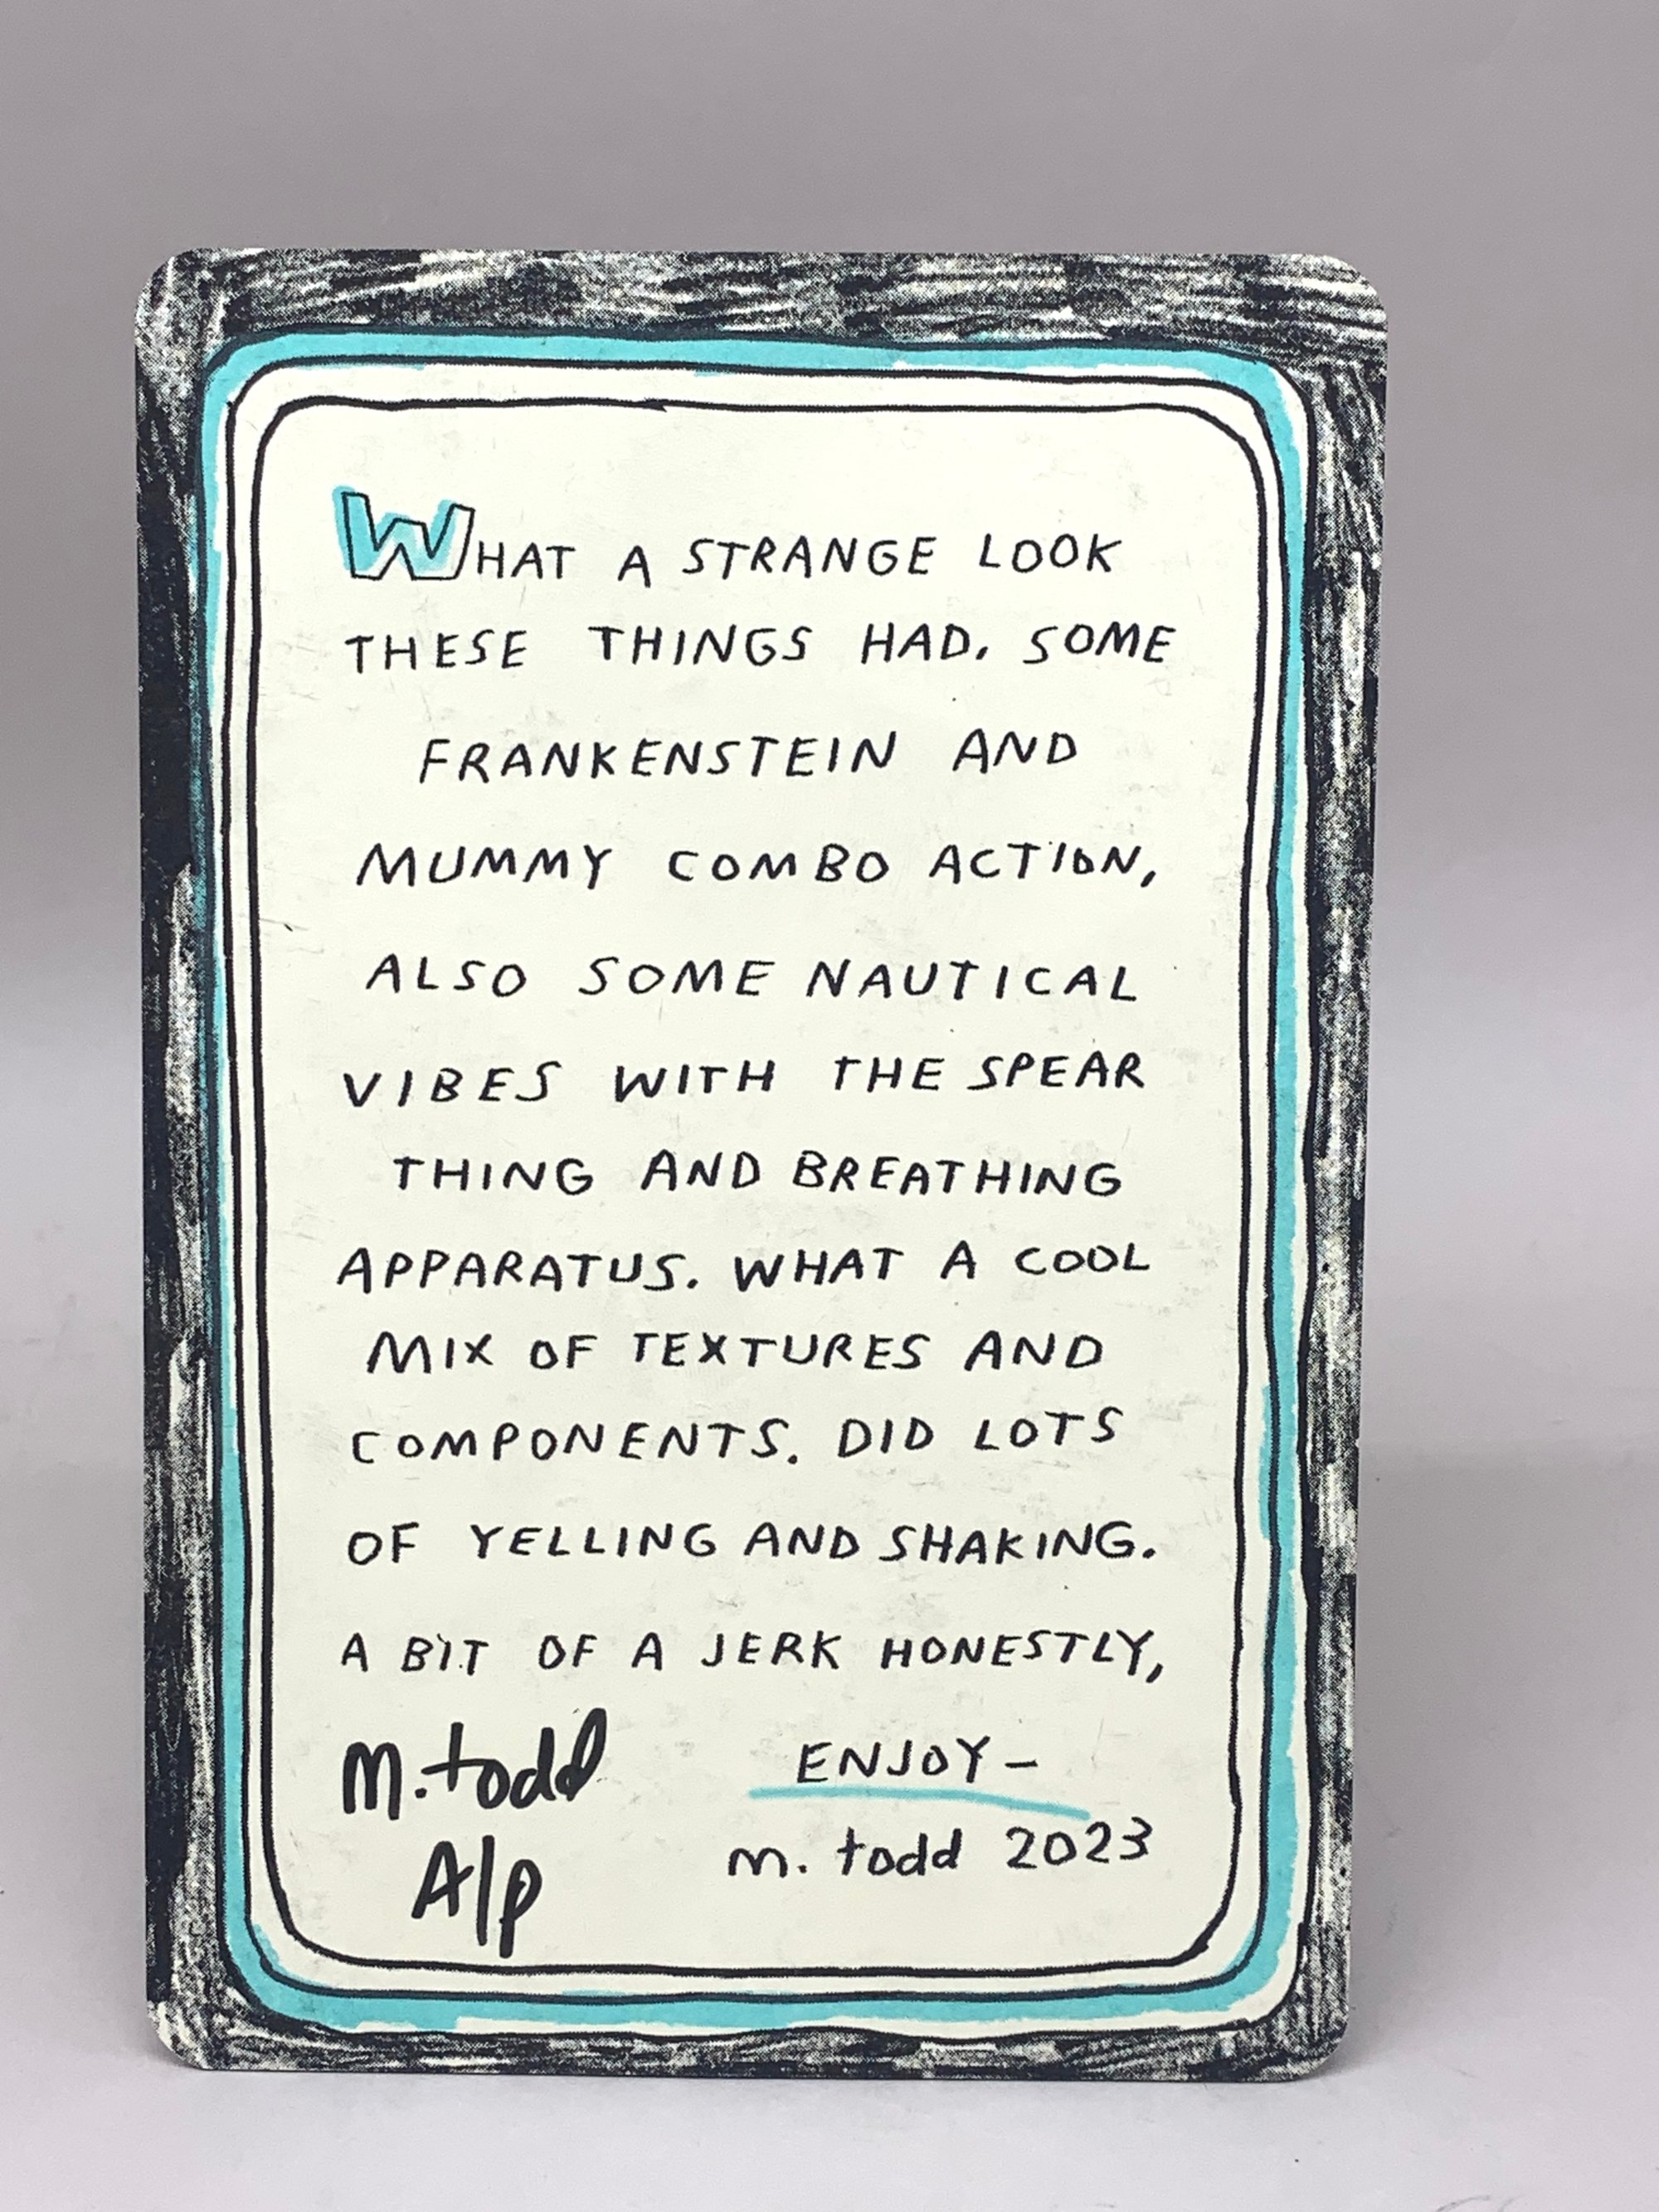 WHAT A STRANGE LOOK
THESE THINGS HAD. SOME
FRANKENSTEIN AND
MUMMY COMBO ACTION,
ALSO SOME NAUTICAL
VIBES WITH THE SPEAR
THING AND BREATHING
APPARATUS. WHAT A COOL
MIX OF TEXTURES AND
COMPONENTS. DID LOTS
OF YELLING AND SHAKING.
A BIT OF A JERK HONESTLY,
ENJOY –
m. todd 2023
M. todd
A/p